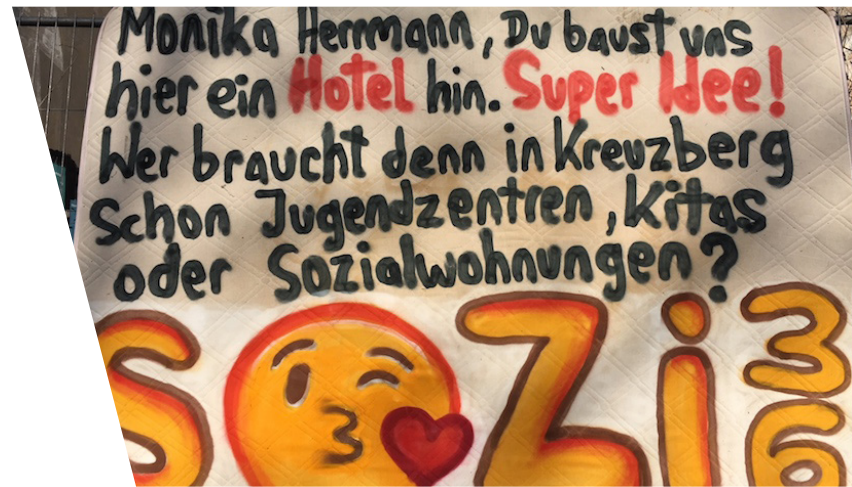 Monika Herrmann, Du baust uns
hier ein Hotel hin. Super Idee!
Wer braucht denn in Kreuzberg
schon Jugendzentren, Kitas
oder Sozialwohnungen?
SOZi36